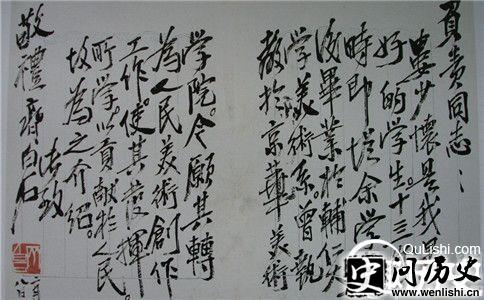 負責同志：
婁少懷是我
好的學生。十三
時即從余學
後畢業於輔仁大
學美術系。曾執
教於京華美術
學院。今願其轉
為人民美術創作
工作。使其發揮
所學。以貢獻於人民。
故為之介紹。
此致
敬禮 齊白石
QuLishi.com
史 问历史
www.wenlishi.cn